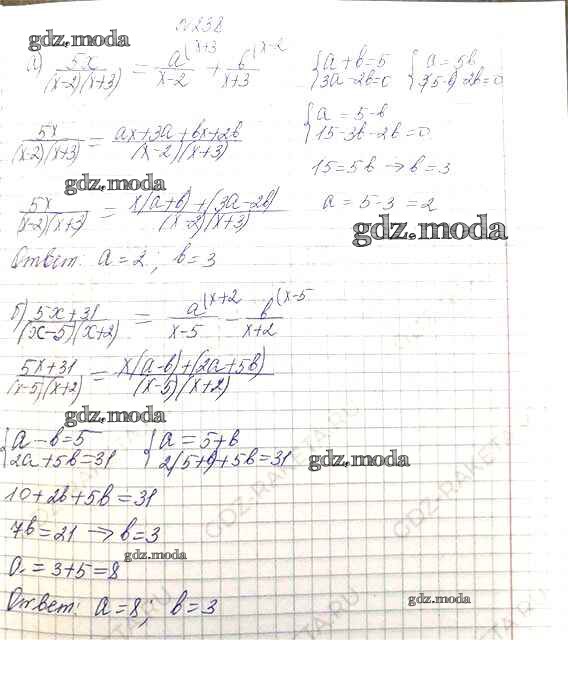 №238
gdz.moda
а) 5x/((x-2)(x+3)) = a(x+3/(x-2) + b(x-2/(x+3) {a+b=5 3a-2b=0 {a=5b 3(5-b)-2b=0
{a=5-b 15-3b-2b=0
5x/((x-2)(x+3)) = (ax+3a+bx+2b)/((x-2)(x+3))
15=5b → b=3
gdz.moda
5x/((x-2)(x+3)) = (x(a+b)+(3a-2b))/((x-2)(x+3)) a=5-3=2
gdz.moda
Ответ: a=2; b=3
б) (5x+31)/((x-5)(x+2)) = a(x+2/(x-5) - b(x-5/(x+2)
(5x+31)/((x-5)(x+2)) = (x(a-b)+(2a+5b))/((x-5)(x+2))
gdz.moda
{a-b=5 2a+5b=31 {a=5+b 2(5+b)+5b=31 gdz.moda
10+2b+5b=31
7b=21 → b=3
gdz.moda
a=3+5=8
Ответ: a=8; b=3
gdz.moda
GDZ-RAKETA.RU
GDZ-RAKETA.RU